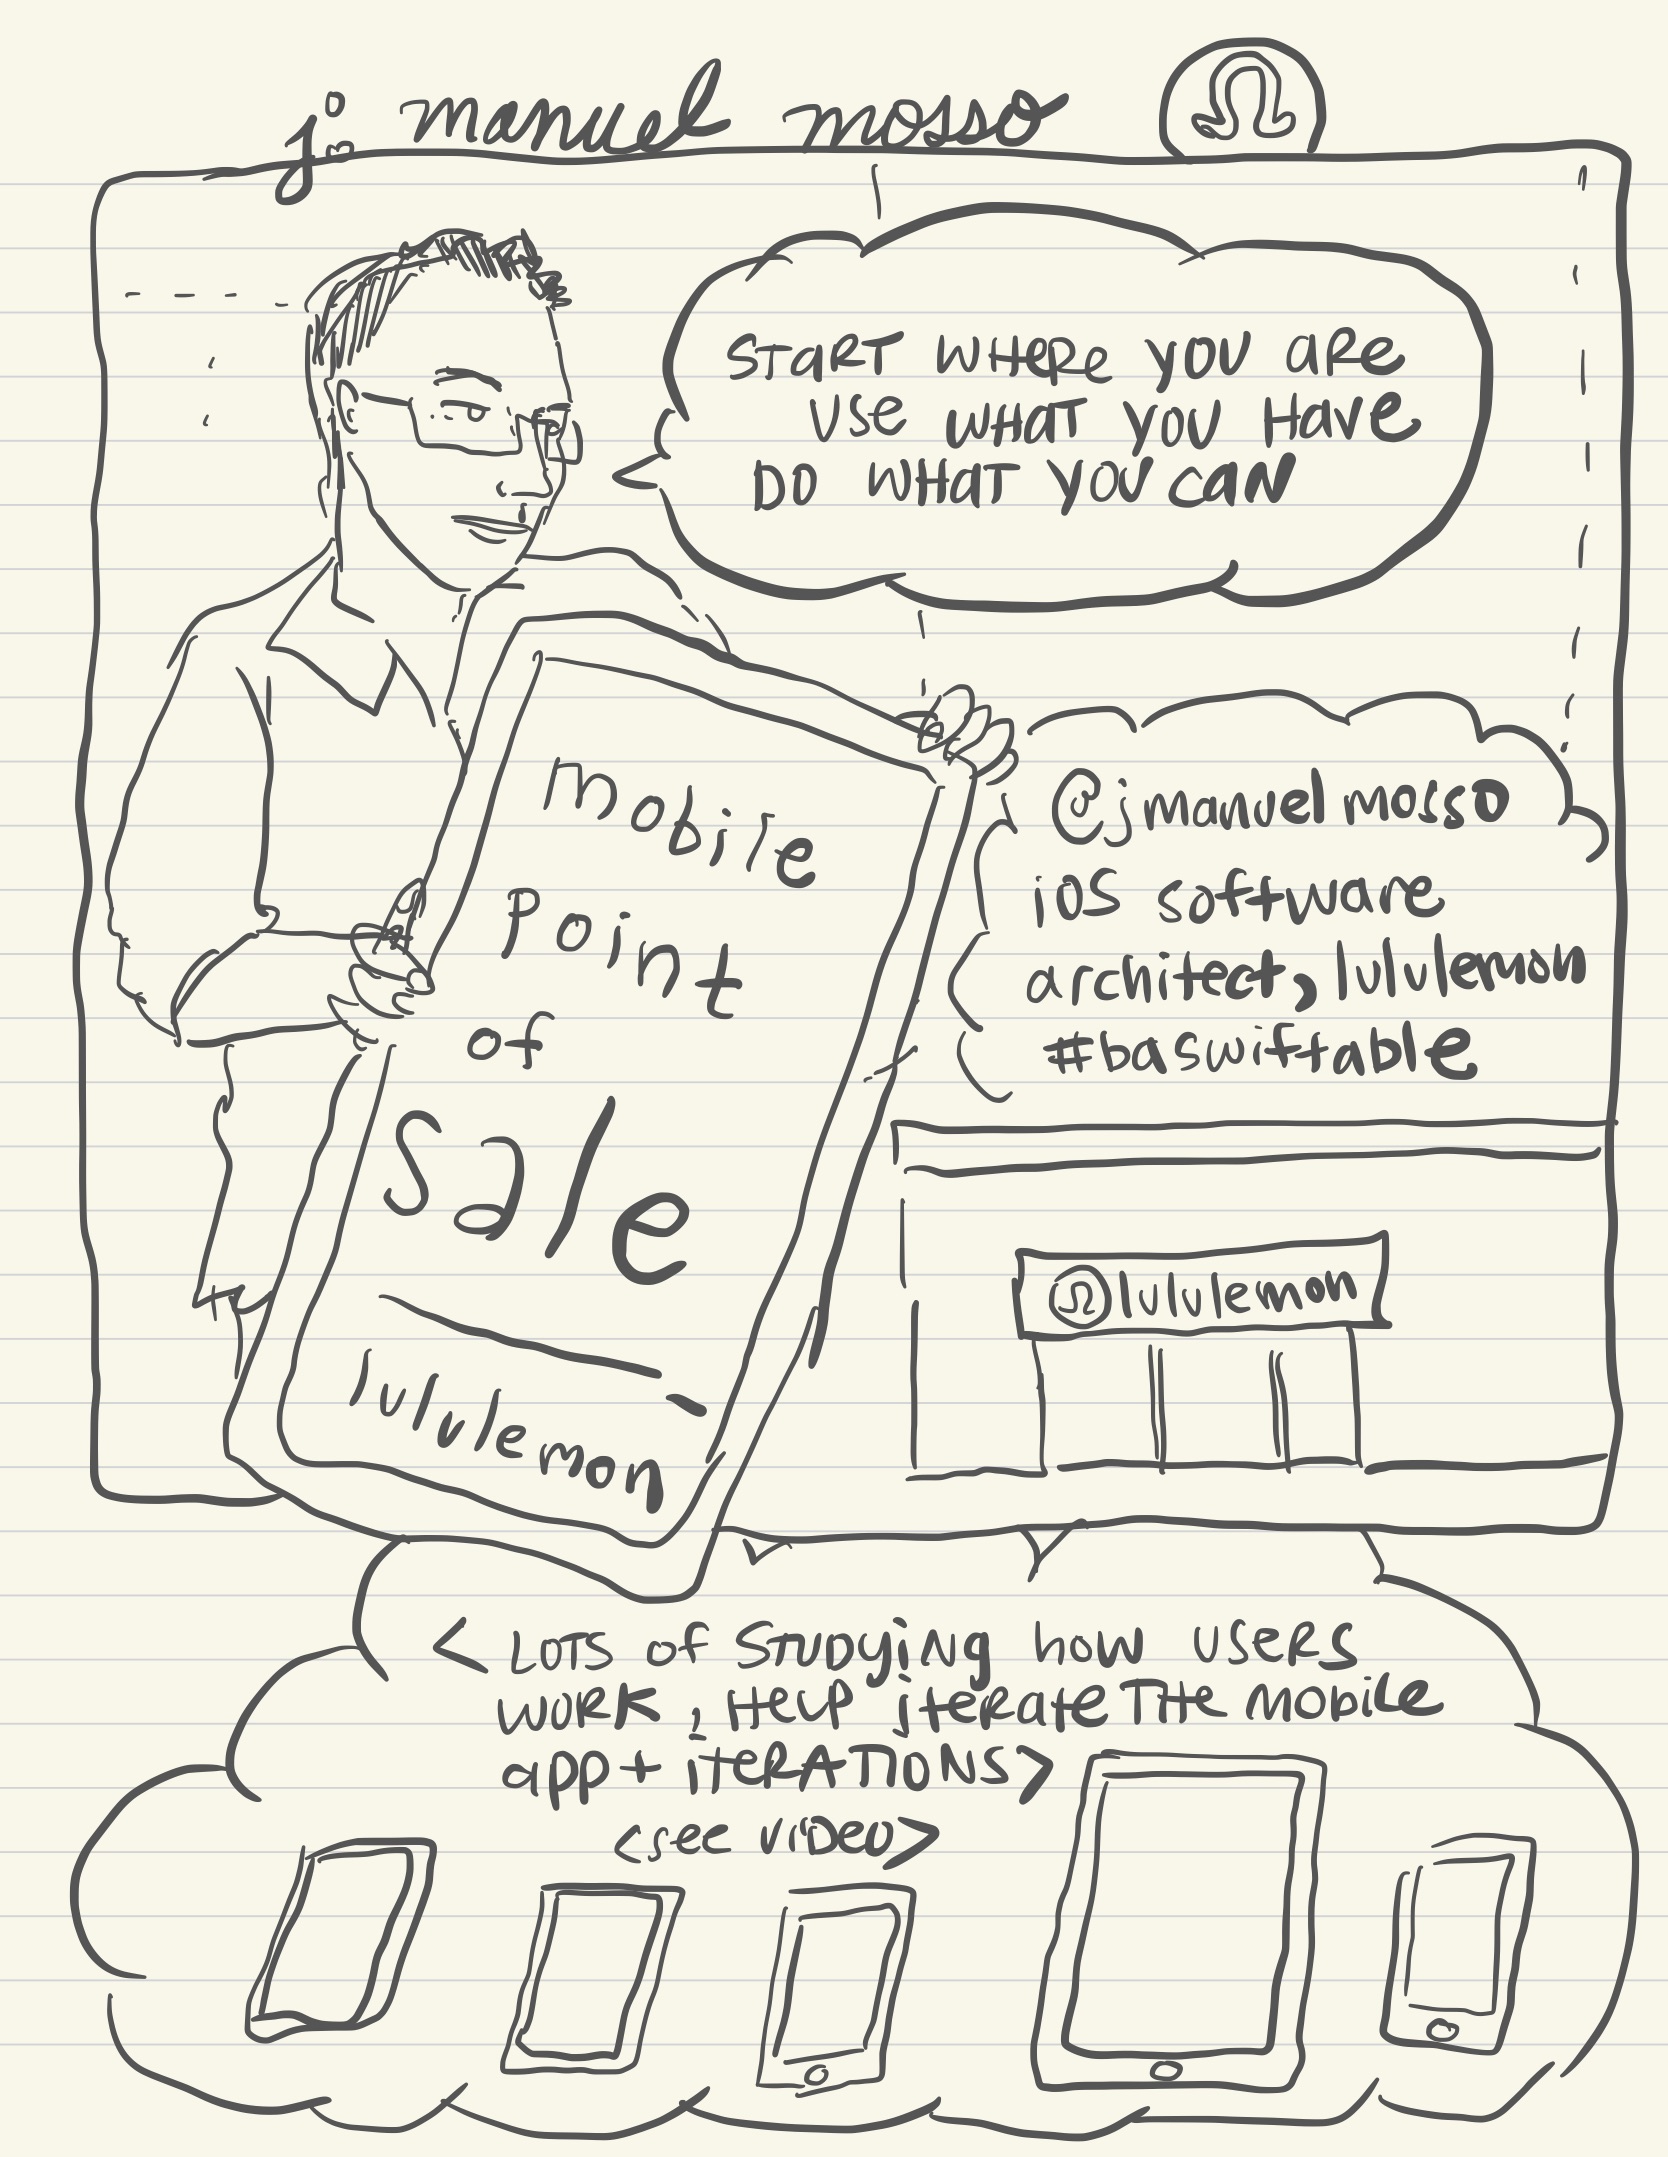 j. manuel mosso
START WHERE YOU ARE
USE WHAT YOU HAVE
DO WHAT YOU CAN
mobile
point
of
sale
lululemon
@jmanuelmosso
iOS software
architect, lululemon
#baswiftable
lululemon
< LOTS of STUDYING how USERS
WORK, HELP ITERATE THE MOBILE
app + ITERATIONS>
<see VIDEO>